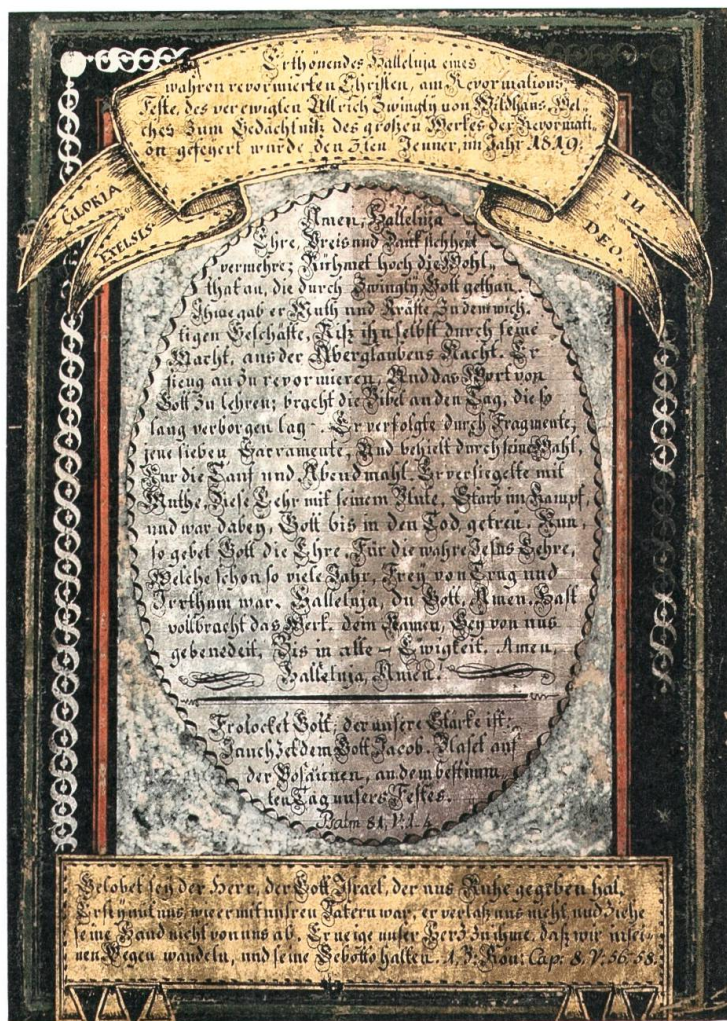 Erthönendes Halleluja eines
wahren revormierten Christen, am Revormations,
Feste, des verewigten Ullrich Zwingly von Wildhaus. Wel„
ches Zum Gedächtniß des großen Werkes der Revormati„
on gefeyert wurde, den 3ten Jenner, im Jahr 1819.
GLORIA
EXELSIS
IN
DEO.
Amen, Halleluja
Ehre, Preis und Dank sich heut
vermehre; Rühmet hoch die Wohl„
that an, die durch Zwingly Gott gethan.
Ihme gab er Muth und Kräfte Zu dem wich„
tigen Geschäfte, Riß ihn selbst durch seine
Macht, aus der Aberglaubens Nacht. Er
fieng an Zu revormieren, Und das Wort von
Gott Zu lehren; bracht die Bibel an den Tag, die so
lang verborgen lag. Er verfolgte durch Fragmente,
jene sieben Sacramente, Und behielt durch seine Wahl,
Nur die Tauf und Abendmahl. Er versiegelte mit
Muthe, Diese Lehr mit seinem Blute, Starb im Kampf,
und war dabey, Gott bis in den Tod getreu. Nun,
so gebet Gott die Ehre, Für die wahre Jesus Lehre,
Welche schon so viele Jahr, Frey von Trug und
Irrthum war. Halleluja, du Gott, Amen. Hast
vollbracht das Werk. dein Namen, Sey von uns
gebenedeit, Bis in alle - Ewigkeit. Amen,
Halleluja, Amen.
Frolocket Gott, der unsere Stärke ist;
Jauchzet dem Gott Jacob. Blaset auf
der Posaunen, an dem bestimm„
ten Tag unsers Festes.
Psalm 81, V: 1. 4.
Gelobet sey der Herr, der Gott Israel, der uns Ruhe gegeben hat.
Er sey mit uns, wie er mit unsren Vätern war, er verlaß uns nicht, und Ziehe
seine Hand nicht von uns ab. Er neige unser Herz Zu ihme, daß wir in sei„
nen Wegen wandeln, und seine Gebotto halten. 1. B: Kön: Cap: 8. V: 56. 58.